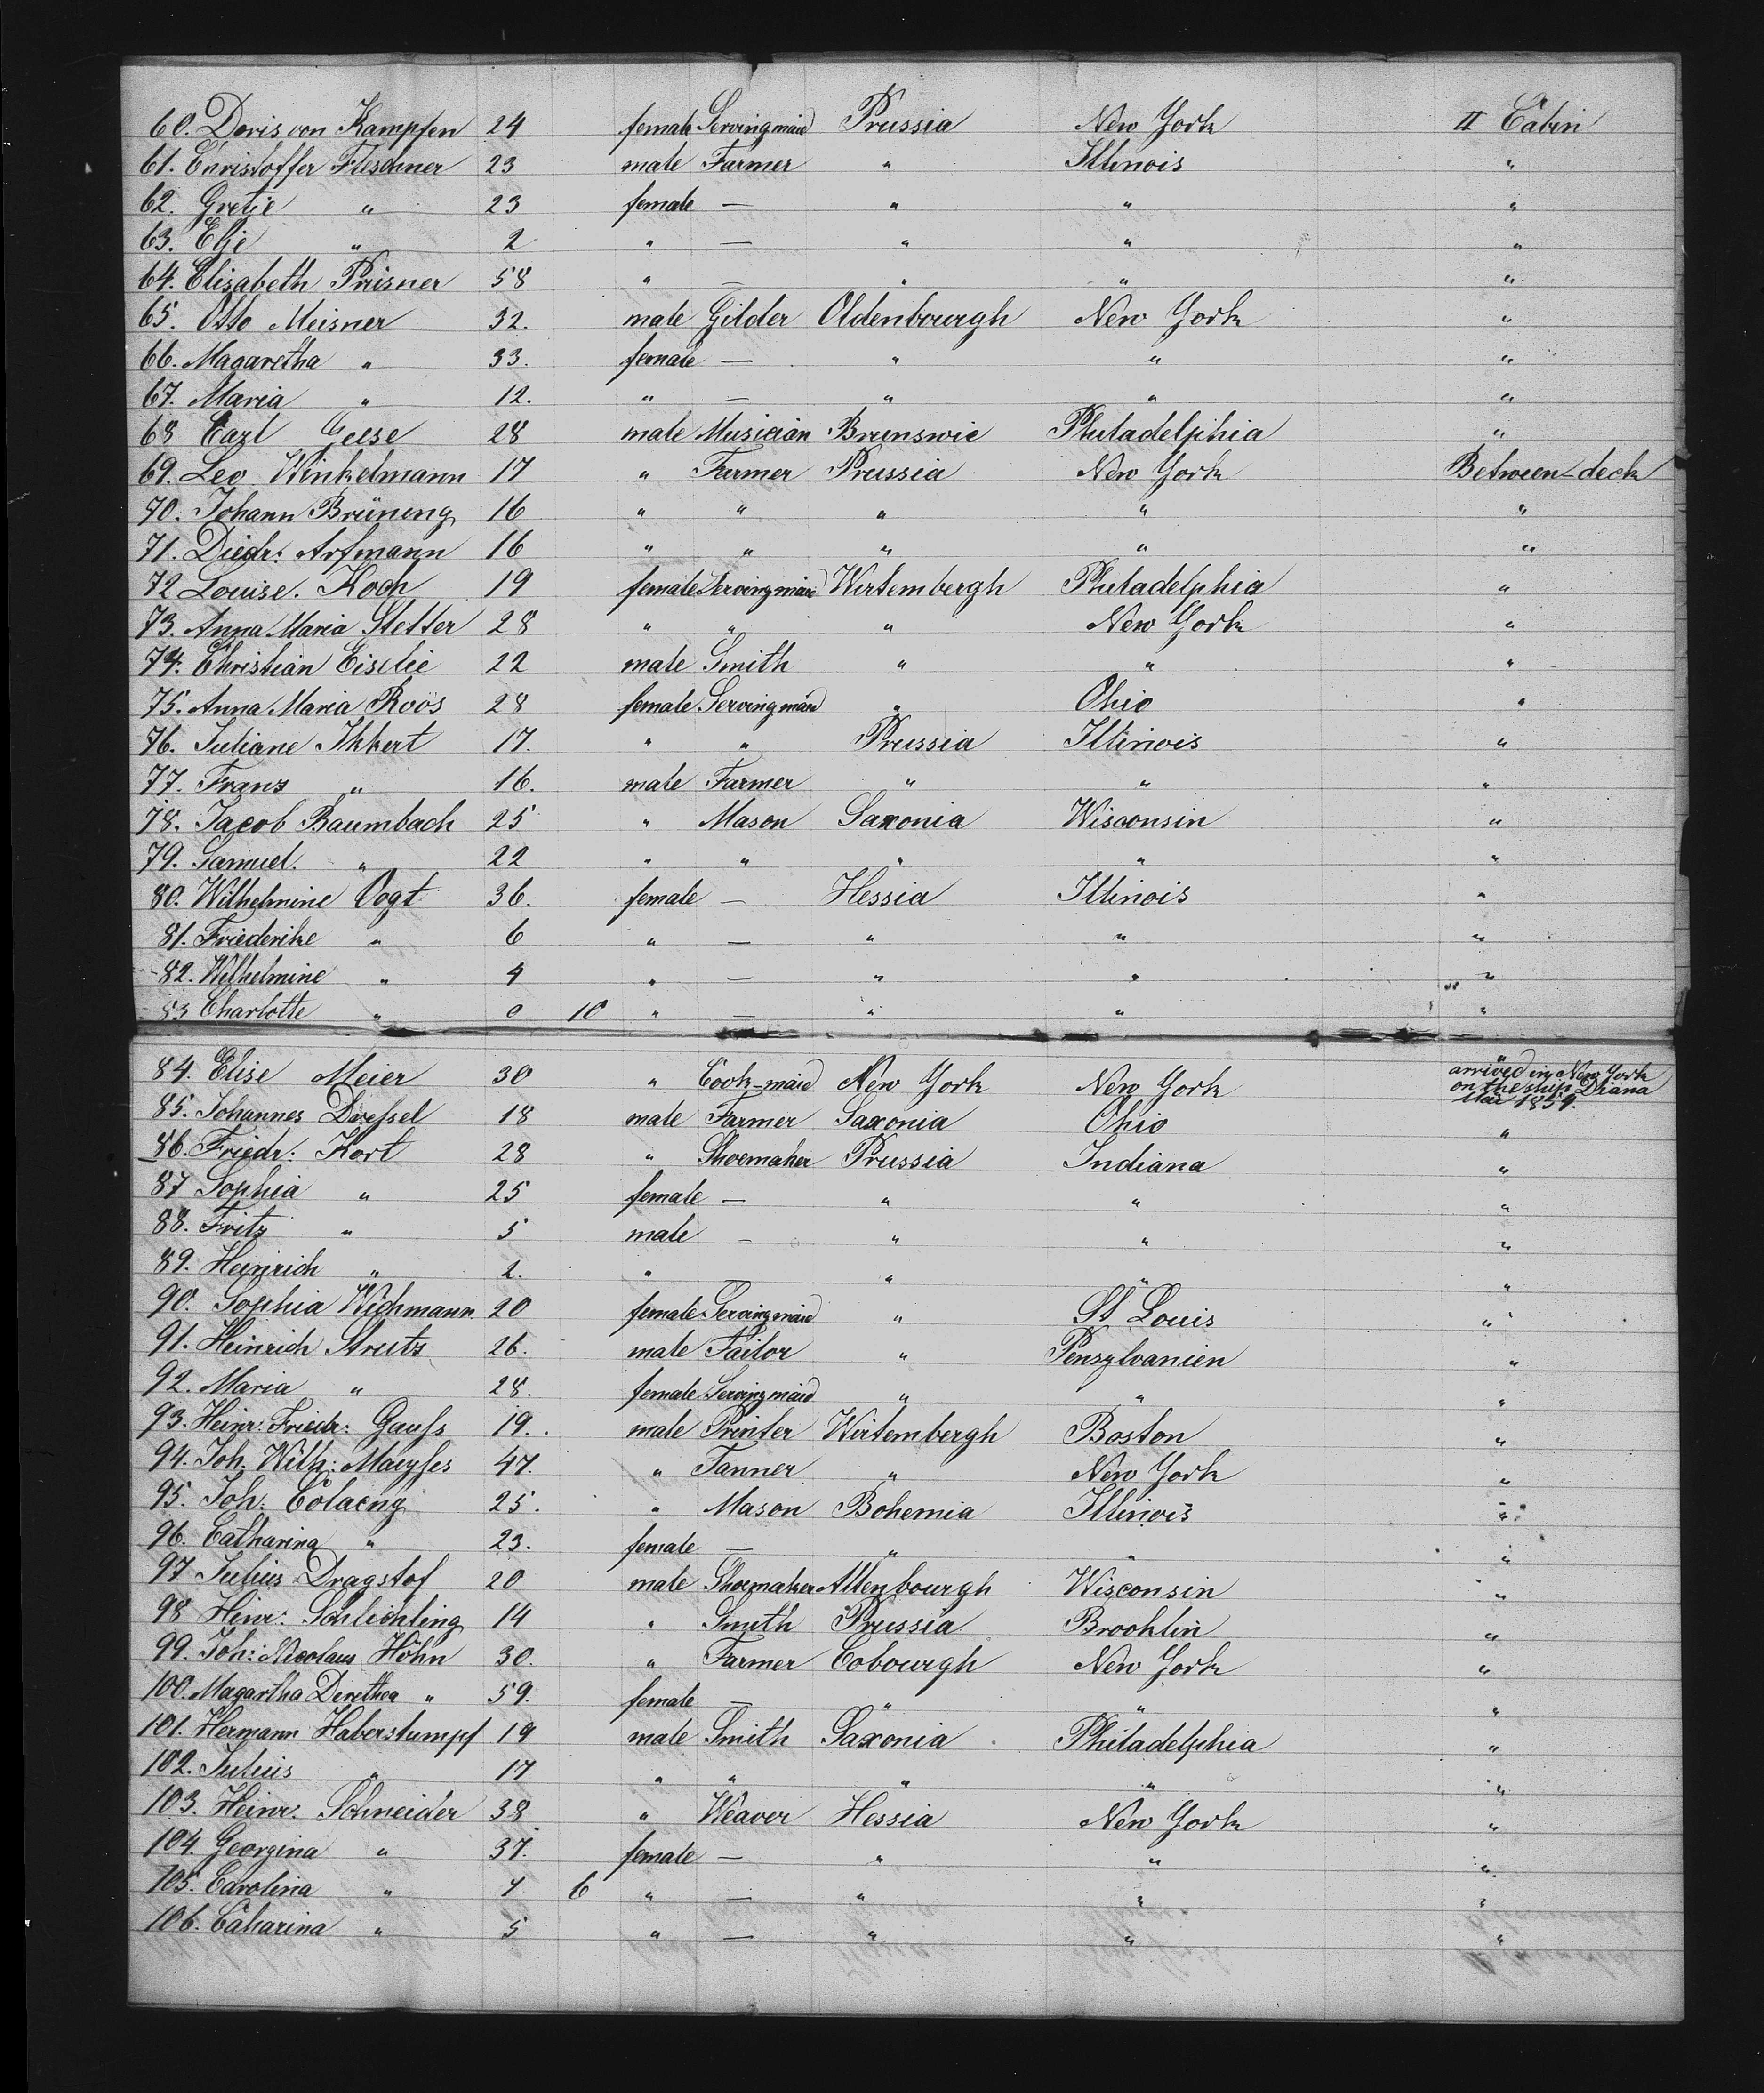 60. Doris von Kampfen 24 female Servingmaid Prussia New York II Cabin
61. Christoffer Fleschner 23 male Farmer " Illinois "
62. Gretje " 23 female — " " "
63. Elje " 2 " — " " "
64. Elisabeth Prisner 58 " — " " "
65. Otto Meisner 32. male Gilder Oldenbourgh New York "
66. Magaretha " 33. female — " " "
67. Maria " 12. " — " " "
68 Carl Geese 28 male Musician Brunswic Philadelphia "
69. Leo Winkelmann 17 " Farmer Prussia New York Between-deck
70. Johann Brüneng 16 " " " " "
71. Diedr: Arfmann 16 " " " " "
72 Louise. Koch 19 female Servingmaid Wirtembergh Philadelphia "
73. Anna Maria Stetter 28 " " " New York "
74. Christian Eiselie 22 male Smith " " "
75. Anna Maria Roos 28 female Servingmaid " Ohio "
76. Juliane Ikkert 17. " " Prussia Illinois "
77. Franz " 16. male Farmer " " "
78. Jacob Baumbach 25 " Mason Saxonia Wisconsin "
79. Samuel. " 22 " " " " "
80. Wilhelmine Vogt 36. female — Hessia Illinois "
81. Friederike " 6 " — " " "
82. Wilhelmine " 4 " — " " "
83 Charlotte " 0 10 " — " " "
84. Elise Meier 30 " Cook-maid New York New York " arrived in New York
on the ship Diana
Mai 1859.
85. Johannes Dressel 18 male Farmer Saxonia Ohio "
86. Friedr: Kort 28 " Shoemaker Prussia Indiana "
87 Sophia " 25 female — " " "
88. Fritz " 5 male — " " "
89. Heinrich " 2. " — " " "
90. Sophia Wichmann 20 female Servingmaid " St Louis "
91. Heinrich Strutz 26. male Tailor " Pensylvanien "
92. Maria " 28. female Servingmaid " " "
93. Heinr: Friedr: Gauss 19. male Printer Wirtembergh Boston "
94. Joh. Wilh: 47. " Tanner " New York "
95. Joh: Colaeng 25. " Mason Bohemia Illinois "
96. Catharina " 23. female — " " "
97 Julius Dragstof 20 male Shoemaker Altenbourgh Wisconsin "
98 Heinr: Schlichting 14 " Smith Prussia Brooklin "
99. Joh: Nicolaus Höhn 30. " Farmer Cobourgh New York "
100. Magartha Derethea " 59. female — " " "
101. Hermann Haberstumpf 19 male Smith Saxonia Philadelphia "
102. Julius " 17 " " " " "
103. Heinr. Schneider 38 " Weaver Hessia New York "
104. Georgina " 37. female — " " "
105. Carolina " 7 6 " — " " "
106. Caharina " 5 " — " " "